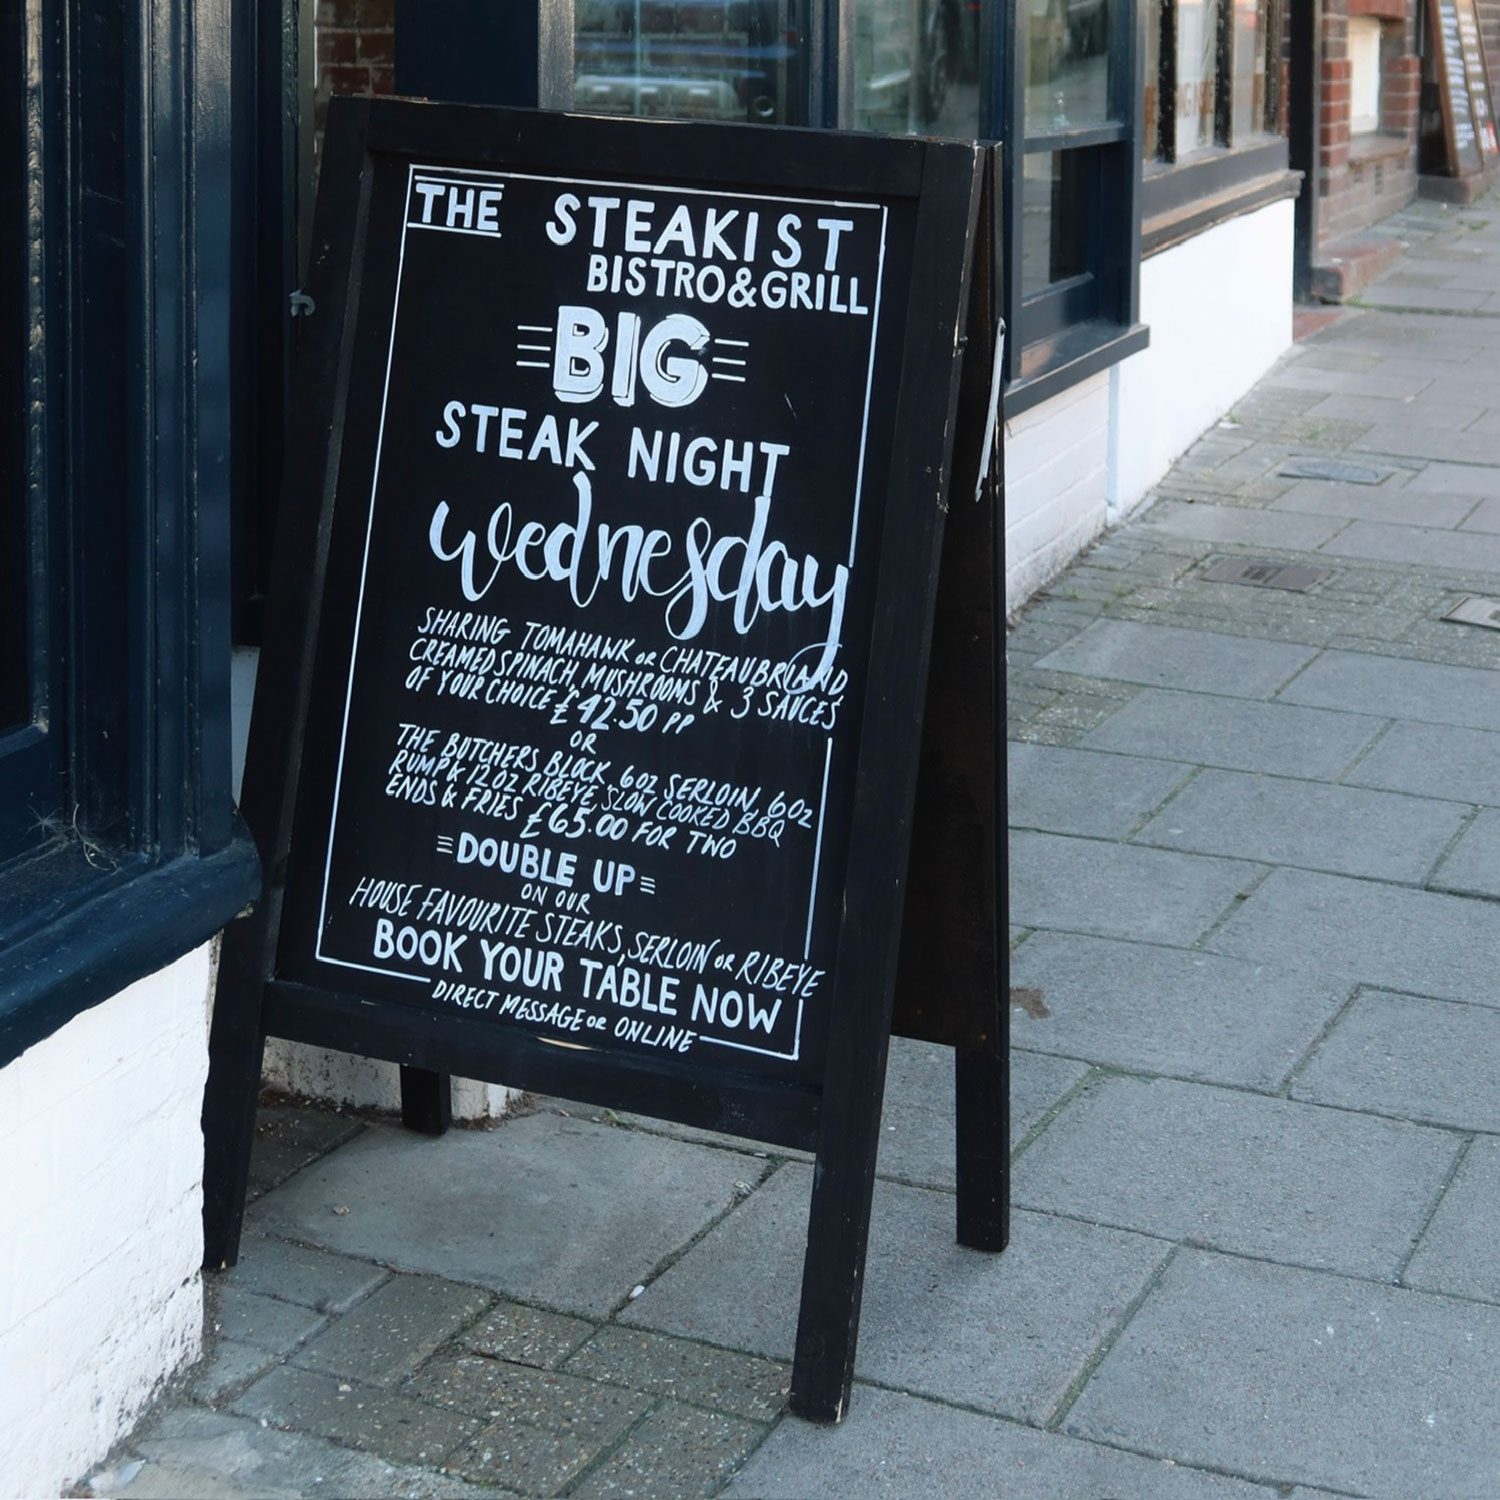 THE STEAKIST
BISTRO&GRILL
BIG
STEAK NIGHT
wednesday
SHARING TOMAHAWK OR CHATEAUBRIAND
CREAMED SPINACH, MUSHROOMS & 3 SAUCES
OF YOUR CHOICE £42.50 PP
OR
THE BUTCHERS BLOCK 6OZ SERLOIN, 6OZ
RUMP & 12OZ RIBEYE, SLOW COOKED BBQ
ENDS & FRIES £65.00 FOR TWO
DOUBLE UP
ON OUR
HOUSE FAVOURITE STEAKS, SERLOIN OR RIBEYE
BOOK YOUR TABLE NOW
DIRECT MESSAGE OR ONLINE